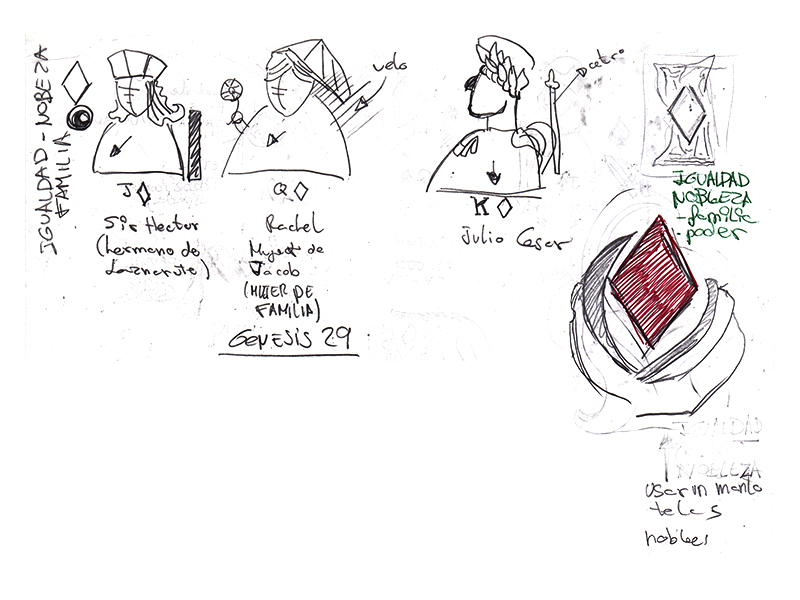 IGUALDAD - NOBEZA
FAMILIA
J
Sir Hector
(hermano de
velo
Q
Rachel
Mujer de
Jacob
(MUJER DE
FAMILIA)
GENESIS 29
cetro
K
Julio Cesar
IGUALDAD
NOBLEZA
-familia
-poder
IGUALDAD
NOBELEZA
usar un manto
telas
nobles